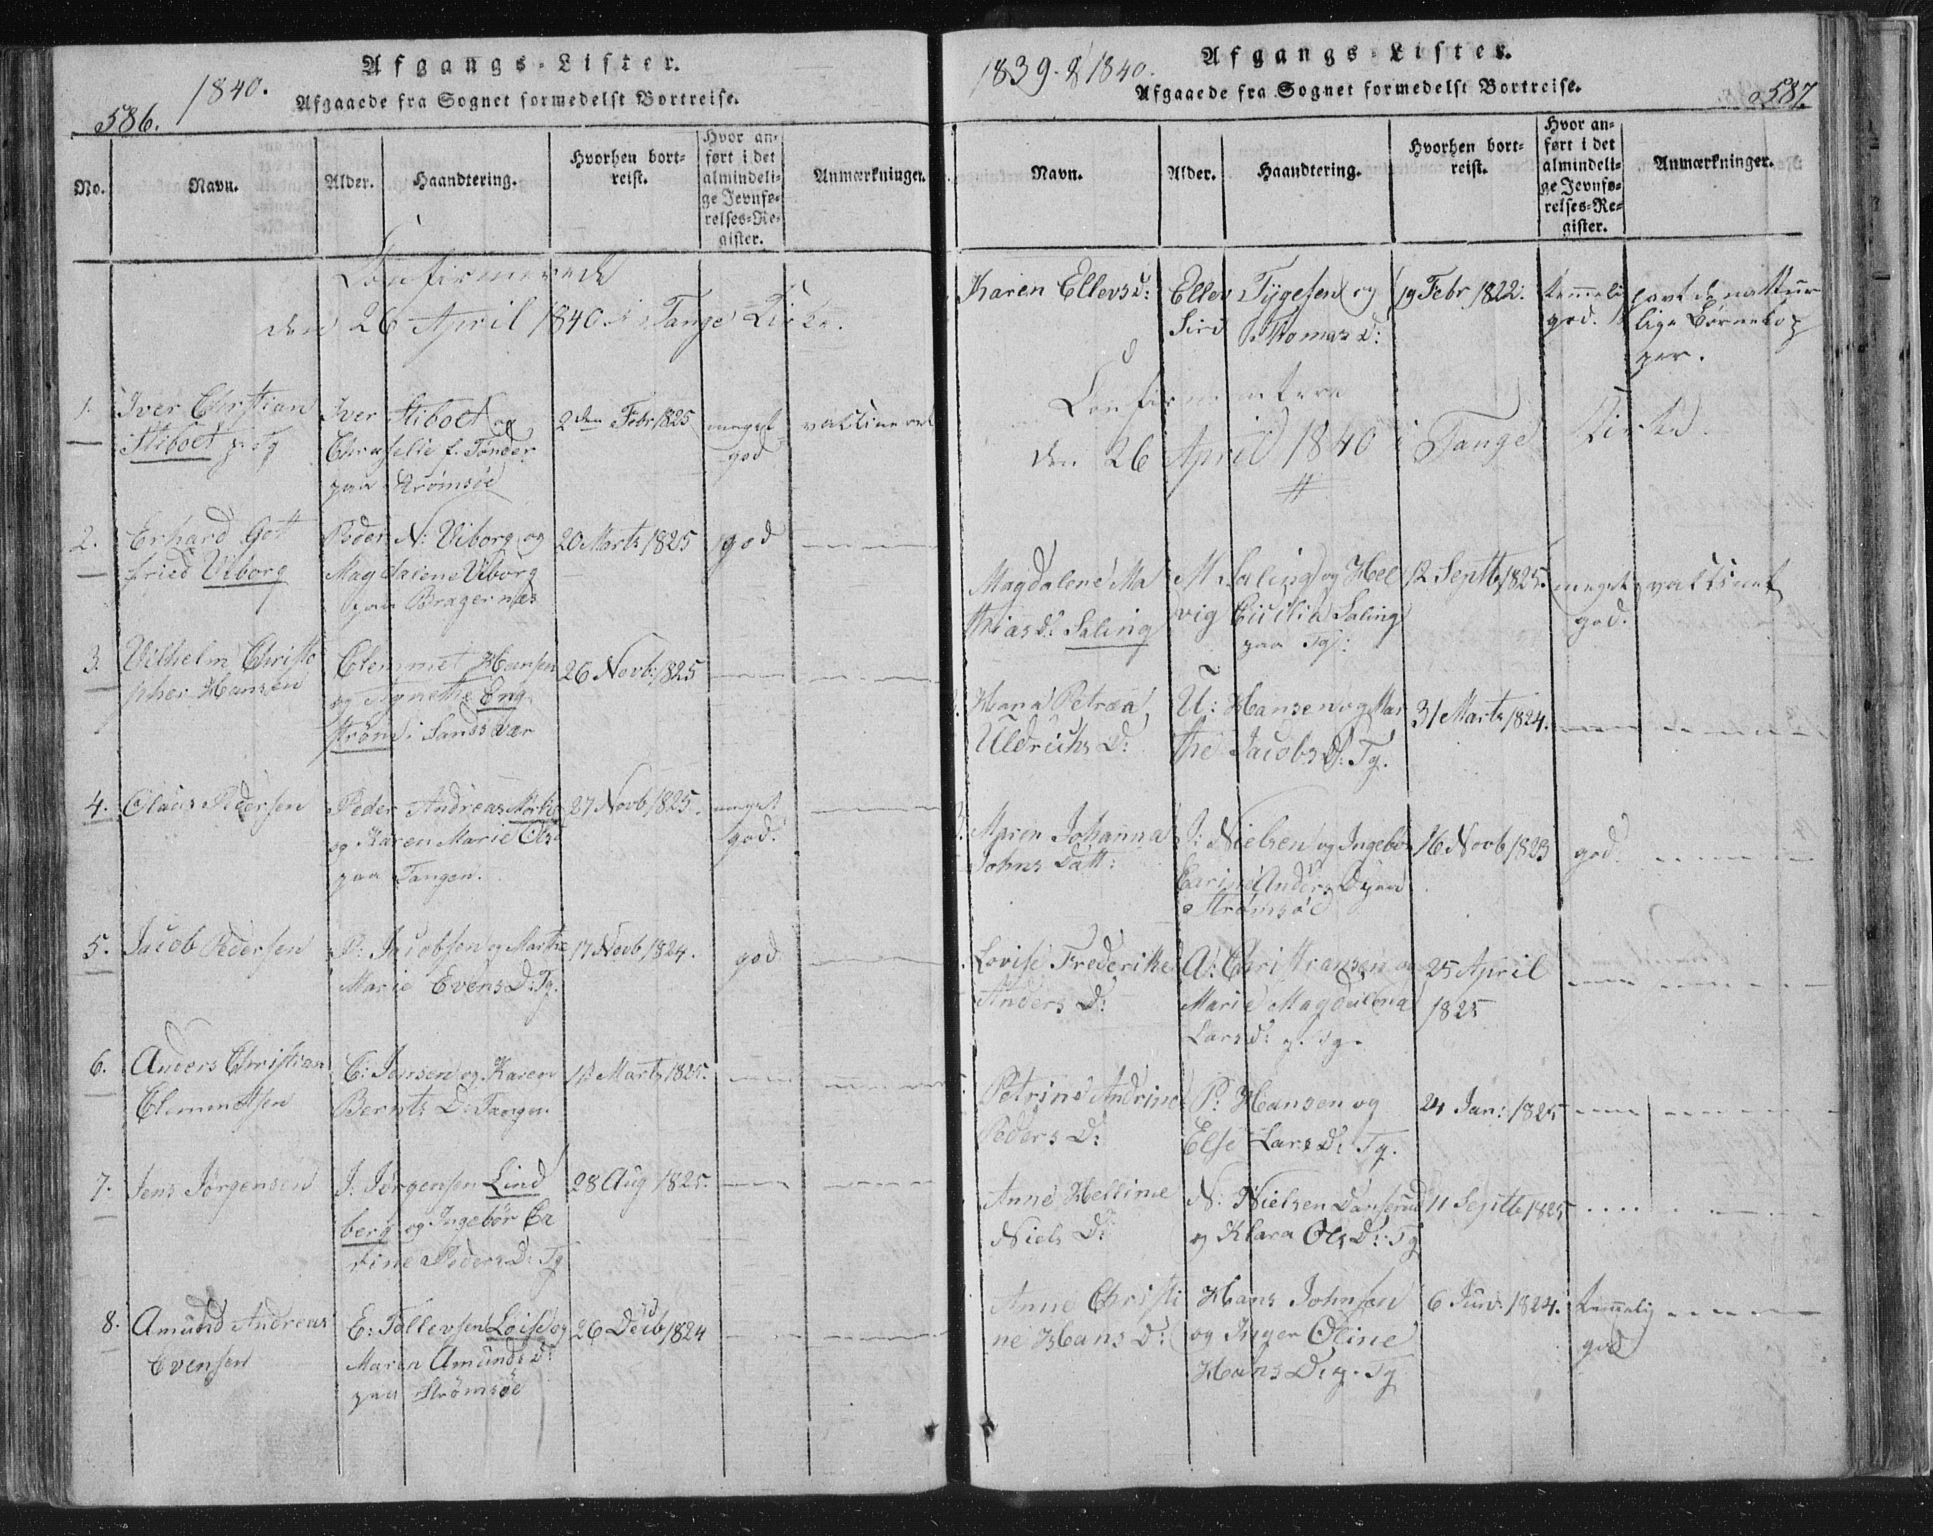 586.
1840.
Afgangs-Lister.
Afgaaede fra Sognet formedelst Bortreise.
No.
Navn.
Alder.
Haandtering.
Hvorhen bort-
reist.
Hvor an-
ført i det
almindeli-
ge Jevnfø-
relses-Re-
gister.
Anmærkninger.
Confirmerede
den 26 April 1840 i Tange Kirke.
1.
Iver Christian
Stiboet p. Tg
Iver Stiboet og
f. Tønder
paa Strømsöe
2den Febr 1825
meget
god
vaccineret
2.
Erhard Got
fried Viborg
Peder N: Viborg og
Magdalene Viborg
paa Bragernæs
20 Marts 1825
god
3.
Vilhelm Christo
pher Hansen
Clemmet Hansen
og Agnethe Eng
strøm i Sandsvær
26 Novb: 1825
4.
Claus Pedersen
Peder Andreas Mørk
og Karen Marie Ols
paa Tangen.
27 Novb 1825.
meget
god.
5.
Jacob Pedersen
P: Jacobsen og Marthe
Marie Evens D: Tg.
17 Novb 1824.
god
6.
Anders Christian
Clemmetsen
C: Jensen og Karen
Bernts D: Tangen.
Marts 1825.
7.
Jens Jörgensen
J: Jörgensen Lind
berg og Ingebör Ca
trine Peders D: Tg
28 Aug 1825.
8.
Amund Andreas
Evensen
E: Tollevsen Loise og
Maren Amunds D:
paa Strømsøe
26 Decb 1824
1839. & 1840.
Afgangs-Lister.
Afgaaede fra Sognet formedelst Bortreise.
587.
Navn.
Alder.
Haandtering.
Hvorhen bort-
reist.
Hvor an-
ført i det
almindeli-
ge Jevnfø-
relses-Re-
gister.
Anmærkninger.
Karen Ellevs D:
Ellev Tygesen og
Siri Thomas D:
19 Febr 1822.
temmeli
god.
havt de nattur
lige Børnekop
per.
Confirmerede
den 26 April 1840 i Tange Kirke.
Magdalene Ma
thias D: Saling
M Saling og Hel
vig Cicilia Saling
paa Tg:
12 Septb 1825.
meget
god.
Hana Petrea
Uldrichs D:
U: Hansen og Mar
the Jacobs D: Tg.
31 Marts 1824.
Maren Johanna
Johns Datt:
J: Nielsen og Ingebør
Carine Anders D paa
Strømsöe
16 Novb 1823
god.
Lovise Frederikke
Anders D:
A: Christiansen og
Marie Magdalena
Lars D: p. Tg.
25 April
1825
Petrine Andrine
Peders D:
P: Hansen og
Else Lars D: Tg.
24 Jan: 1825
Anne Helline
Niels D:
N: Nielsen Danserud
og Klara Ols D: Tg
11 Septb 1825
Anne Christi
ne Hans D:
Hans Johnsen
og Inger Oline
Hans D: p. Tg
6 Jun: 1824.
temmelig
god